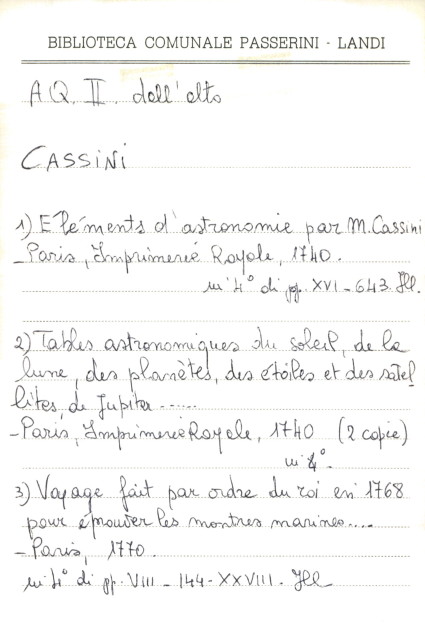 BIBLIOTECA COMUNALE PASSERINI - LANDI
AQ. II. dall'alto
CASSINI
1) Eléments d'astronomie par M. Cassini
- Paris, Imprimerie Royale, 1740.
in 4° di pp. XVI - 643. Ill.
2) Tables astronomiques du soleil, de la
lune, des planètes, des étoiles et des satel
lites, de Jupiter ......
- Paris, Imprimerie Royale, 1740 (2 copie)
in 4°.
3) Voyage fait par ordre du roi en 1768
pour éprouver les montres marines....
- Paris, 1770.
in 4° di pp. VIII - 144 - XXVIII. Ill